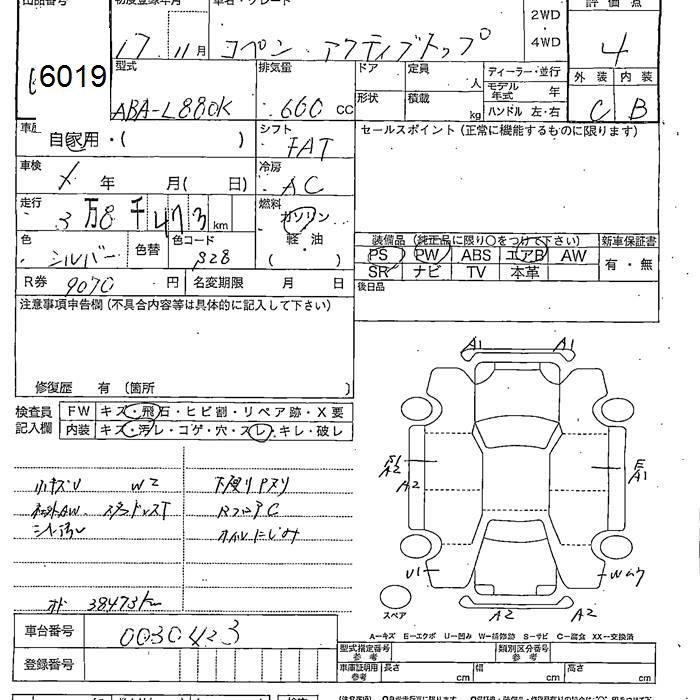 出品番号 初度登録年月 車名・グレード 評価点
6019 17. 11月 コペン・アクティブトップ 2WD・4WD 4
型式 排気量 ドア 定員 人 ディーラー・並行 外装 内装
ABA-L880K 600 CC 形状 積載 kg モデル年式 年 C B
ハンドル 左・右
車歴 自家用・( ) シフト FAT セールスポイント (正常に機能するものに限ります)
車検 〆 年 月( 日) 冷房 AC
走行 3万8千473km 燃料 ガソリン
軽・油
( )
色 シルバー 色替 色コード S28
装備品 (純正品に限り○をつけて下さい) 新車保証書
PS PW ABS エアB AW 有・無
SR ナビ TV 本革
R券 9070 円 名変期限 月 日 後日品
注意事項申告欄 (不具合内容等は具体的に記入して下さい)
修復歴 有 (箇所 )
検査員記入欄 FW キズ・飛石・ヒビ割・リペア跡・X要
内装 キズ・汚レ・コゲ・穴・スレ・キレ・破レ
小キズU W2 下廻りPスリ
シート汚レ オイルにじみ
オド 38473km
A1 A1
A2
A2
A1
U1
A2 A2
スペア
A−キズ E−エクボ U−凹み W−補修跡 S−サビ C−腐食 XX−交換済
車台番号 0030423
型式指定番号 参考 類別区分番号 参考
登録番号 車庫証明用 参考 長さ cm 幅 cm 高さ cm